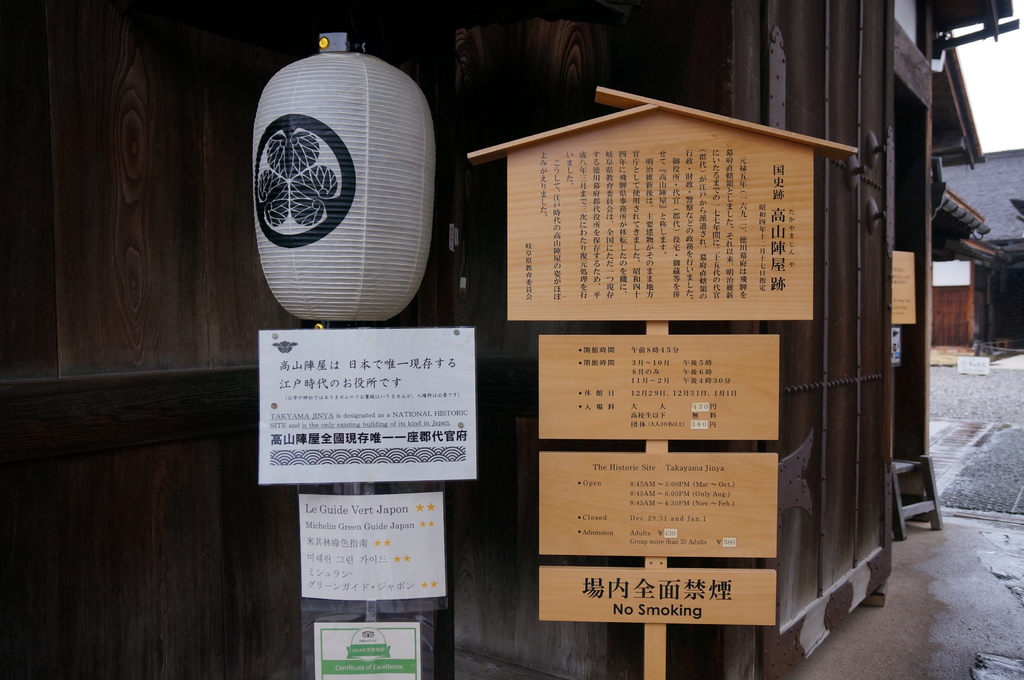 高山陣屋は 日本で唯一現存する
江戸時代のお役所です
(お寺や神社ではありませんのでお賽銭はいりませんが、入場料は必要です)
TAKYAMA JINYA is designated as a NATIONAL HISTORIC
SITE and is the only existing building of its kind in Japan.
高山陣屋全國現存唯一一座郡代官府
Le Guide Vert Japon ★★
Michelin Green Guide Japan ★★
米其林綠色指南 ★★
미쉐린 그린 가이드 ★★
ミシュラン・
グリーンガイド・ジャポン ★★
Certificate of Excellence
国史跡 高山陣屋跡
たかやまじんや
昭和四年十二月十七日指定
元禄五年(一六九二)、徳川幕府は飛騨を
幕府直轄領としました。それ以来、明治維新
にいたるまでの一七七年間に二十五代の代官
(郡代)が江戸から派遣され、幕府直轄領の
行政・財政・警察などの政務を行いました。
御役所・代官(郡代)役宅・御蔵等を併
せて「高山陣屋」と称します。
明治維新後は、主要建物がそのまま地方
官庁として使用されてきました。昭和四十
四年に飛騨県事務所が移転したのを機に、
岐阜県教育委員会は、全国にただ一つ現存
する徳川幕府郡代役所を保存するため、平
成八年三月まで三次にわたり復元処理を行
いました。
こうして、江戸時代の高山陣屋の姿がほぼ
よみがえりました。
岐阜県教育委員会
•開館時間 午前8時45分
•閉館時間 3月〜10月 午後5時
8月のみ 午後6時
11月〜2月 午後4時30分
•休館日 12月29日、12月31日、1月1日
•入場料 大人 430円
高校生以下 無料
団体(大人30名以上) 380円
The Historic Site Takayama Jinya
•Open 8:45AM〜5:00PM (Mar.〜Oct.)
8:45AM〜6:00PM (Only Aug.)
8:45AM〜4:30PM (Nov.〜Feb.)
•Closed Dec.29,31 and Jan.1
•Admission Adults ¥430
Group more than 30 Adults ¥380
場内全面禁煙
No Smoking